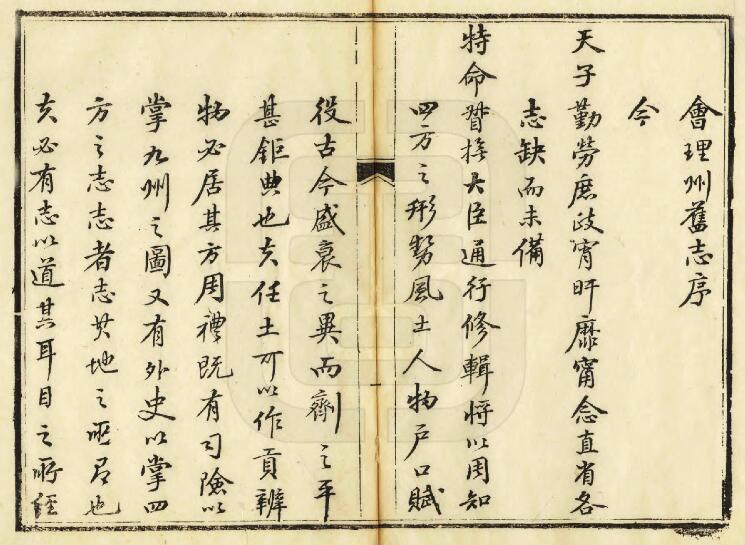 會理州舊志序
今
天子勤勞庶政宵旰靡甯念直省各
志缺而未備
特命督撫大臣通行修輯將以周知
四方之形勢風土人物戶口賦
役古今盛衰之異而劑之平
甚鉅典也夫任土可以作貢辨
物必居其方周禮既有司險以
掌九州之圖又有外史以掌四
方之志志者志其地之所有也
夫必有志以道其耳目之所經